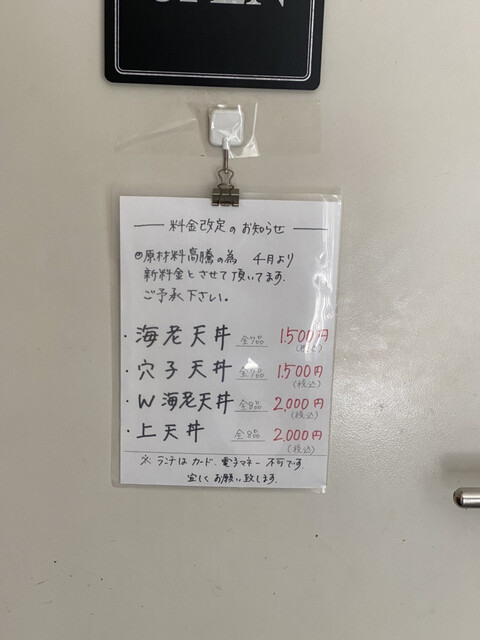 OPEN
料金改定のお知らせ
◎原材料高騰の為 4月より
新料金とさせて頂いてます。
ご予承下さい。
・海老天丼 全7品 1.500円
(税込)
・穴子天丼 全7品 1.500円
(税込)
・W海老天丼 全8品 2,000円
(税込)
・上天丼 全8品 2,000円
(税込)
※ ランチは カード、電子マネー 不可です。
宜しくお願い致します。